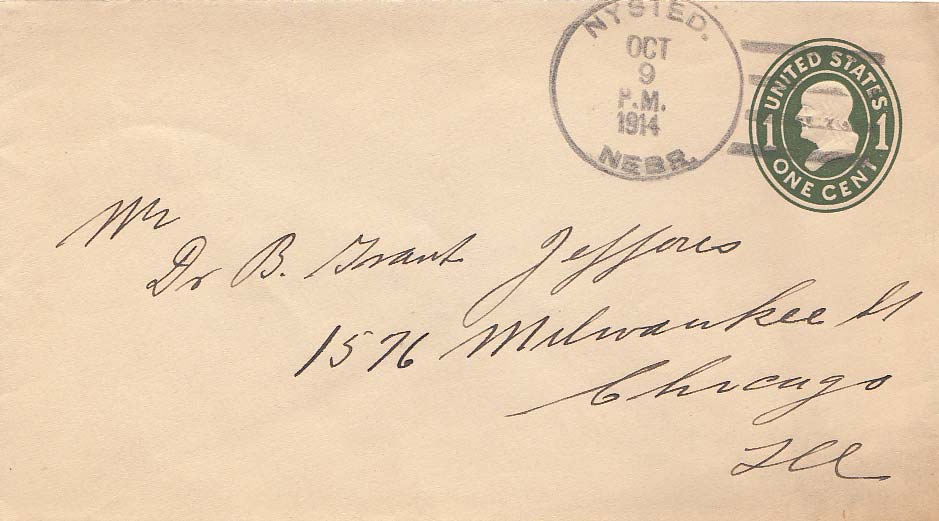 NYSTED.
OCT
9
P.M.
1914
NEBR.
UNITED STATES
1 1
ONE CENT
Mr
Dr B. Grant Jefferis
1576 Milwaukee St
Chicago
Ill